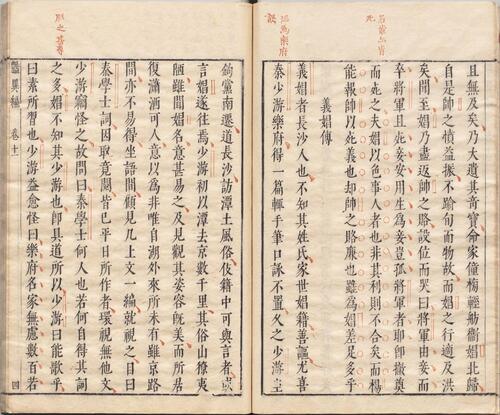 且無及矣乃大遺其奇寶命家僮榜輕舫衛娼北歸
自是帥之憤益振不踰旬而物故而娼之行適及洪
矣問至娼乃盡返帥之賂設位而哭曰將軍由妾而
卒將軍且死妾安用生為妾豈孤將軍者耶即撤奠
而死之夫娼以色事人者也非其利則不合矣而楊
能報帥以死義也却帥之賂廉也雖為娼差足多乎
義娼傳
義娼者長沙人也不知其姓氏家世娼籍善謳尤喜
秦少游樂府得一篇輒手筆口詠不置久之少游坐
鉤黨南遷道長沙訪潭土風俗伎籍中可與言者或
言娼遂往焉少游初以潭去京數千里其俗山獠夷
陋雖聞娼名意甚易之及見觀其姿容旣美而所居
復瀟洒可人意以為非唯自湖外來所未有雖京路
間亦不易得坐語間顧見几上文一編就視之目曰
秦學士詞因取竟閱皆己平日所作者環視無他文
少游竊怪之故問曰秦學士何人也若何自得其詞
之多娼不知其少游也卽具道所以少游曰能歌乎
曰素所習也少游益愈怪曰樂府名家無慮數百若
豔異編 卷十一 四